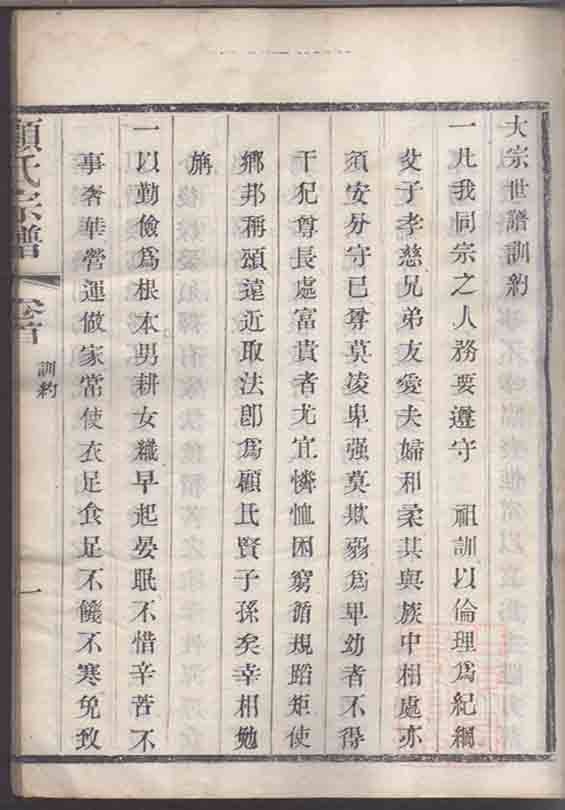 大宗世譜訓約
一凡我同宗之人務要遵守　祖訓以倫理爲紀綱
父子孝慈兄弟友愛夫婦和柔其與族中相處亦
須安分守已尊莫凌卑强莫欺弱爲卑幼者不得
干犯尊長處富貴者尤宜憐恤困窮循規蹈矩使
鄉邦稱頌遠近取法卽爲顧氏賢子孫矣幸相勉
旃
一以勤儉爲根本男耕女織早起晏眠不惜辛苦不
事奢華營運做家當使衣足食足不饑不寒免致
顧氏宗譜
卷首
訓約
一